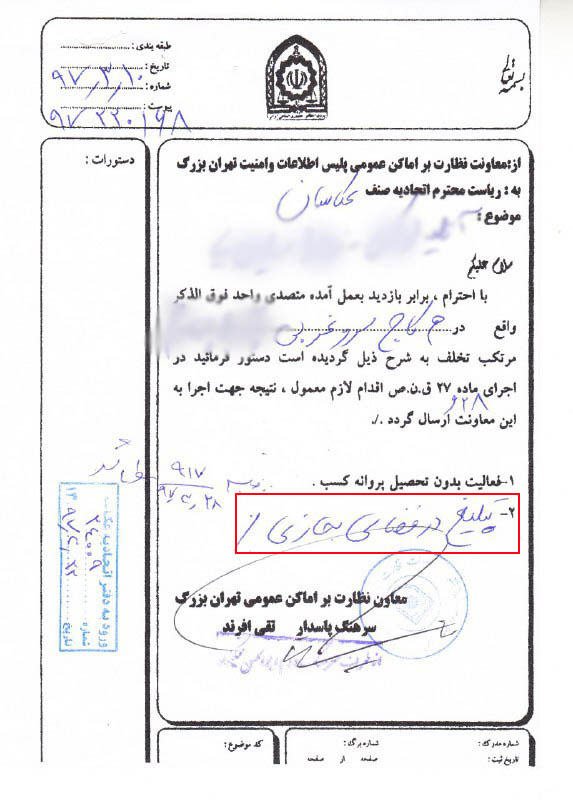 بسمه تعالی
طبقه بندی :
تاریخ : ۹۷/۳/۱۰
شماره :
پیوست :
۹۷۲۲۰۱۶۸
دستورات :
از:معاونت نظارت بر اماکن عمومی پلیس اطلاعات وامنیت تهران بزرگ
به : ریاست محترم اتحادیه صنف عکاسان
موضوع :
سلام علیکم
با احترام ، برابر بازدید بعمل آمده متصدی واحد فوق الذکر
واقع در م کاج سرو غربی
مرتکب تخلف به شرح ذیل گردیده است دستور فرمائید در
اجرای ماده ۲۷ ق.ن.ص اقدام لازم معمول ، نتیجه جهت اجرا به
و ۲۸
این معاونت ارسال گردد ./.
۱-فعالیت بدون تحصیل پروانه کسب .
۲- تبلیغ در فضای مجازی
۹۱۷
۹۷/۴/۲۸
معاون نظارت بر اماکن عمومی تهران بزرگ
سرهنگ پاسدار تقی افرند
ورود به دفتر اتحادیه عکاسان
شماره ۲۴۰۰۹
تاریخ
شماره مدرک :
شماره برگ :
کد موضوع :
تاریخ ثبت :
صفحه از صفحه